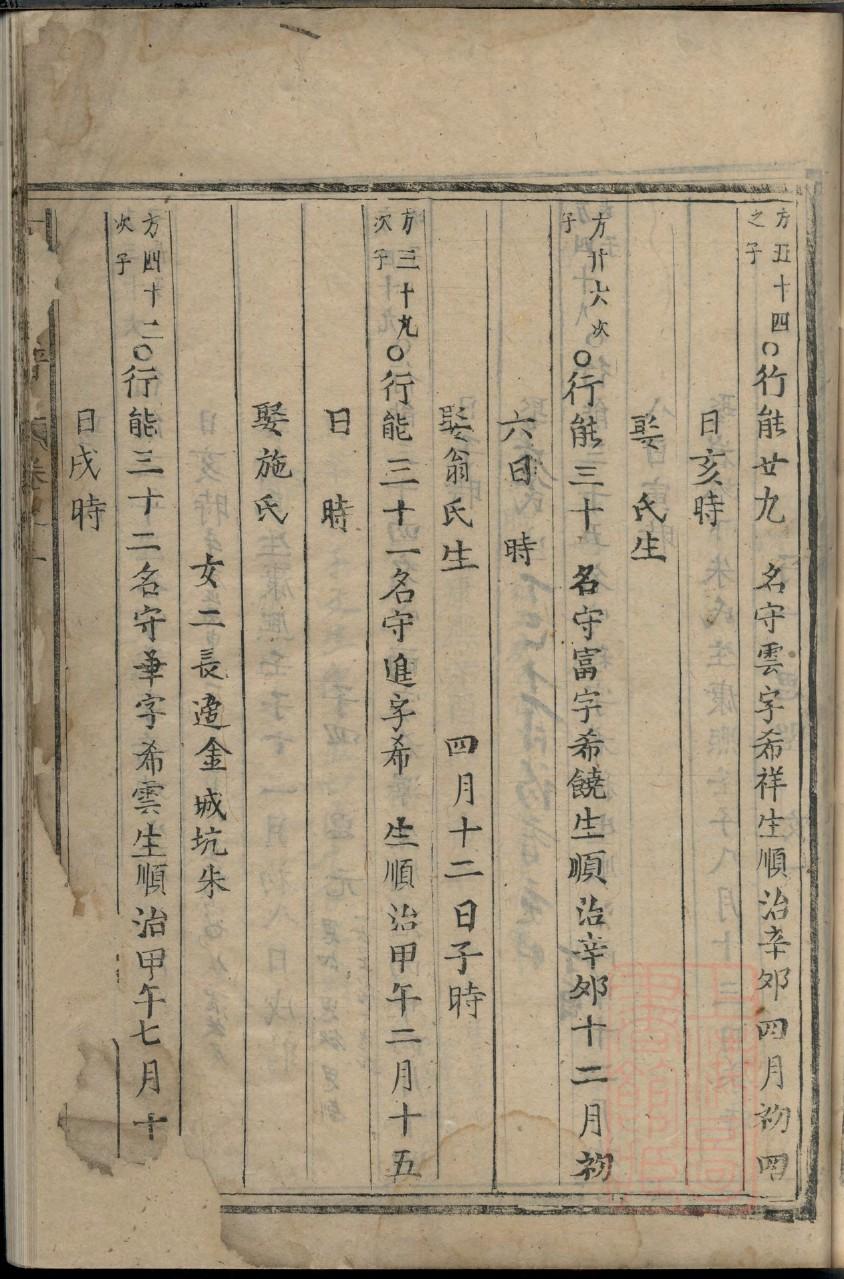 方五十四之子
○行能廿九 名守雲字希祥生順治辛夘四月初四
日亥時
娶 氏生
方廿六次子
○行能三十 名守富字希饒生順治辛夘十二月初
六日 時
娶翁氏生 四月十二日子時
方三十九次子
○行能三十一名守進字希 生順治甲午二月十五
日 時
娶施氏
女二長適金城坑朱
方四十二次子
○行能三十二名守華字希雲生順治甲午七月十
日戌時
譜 卷之一